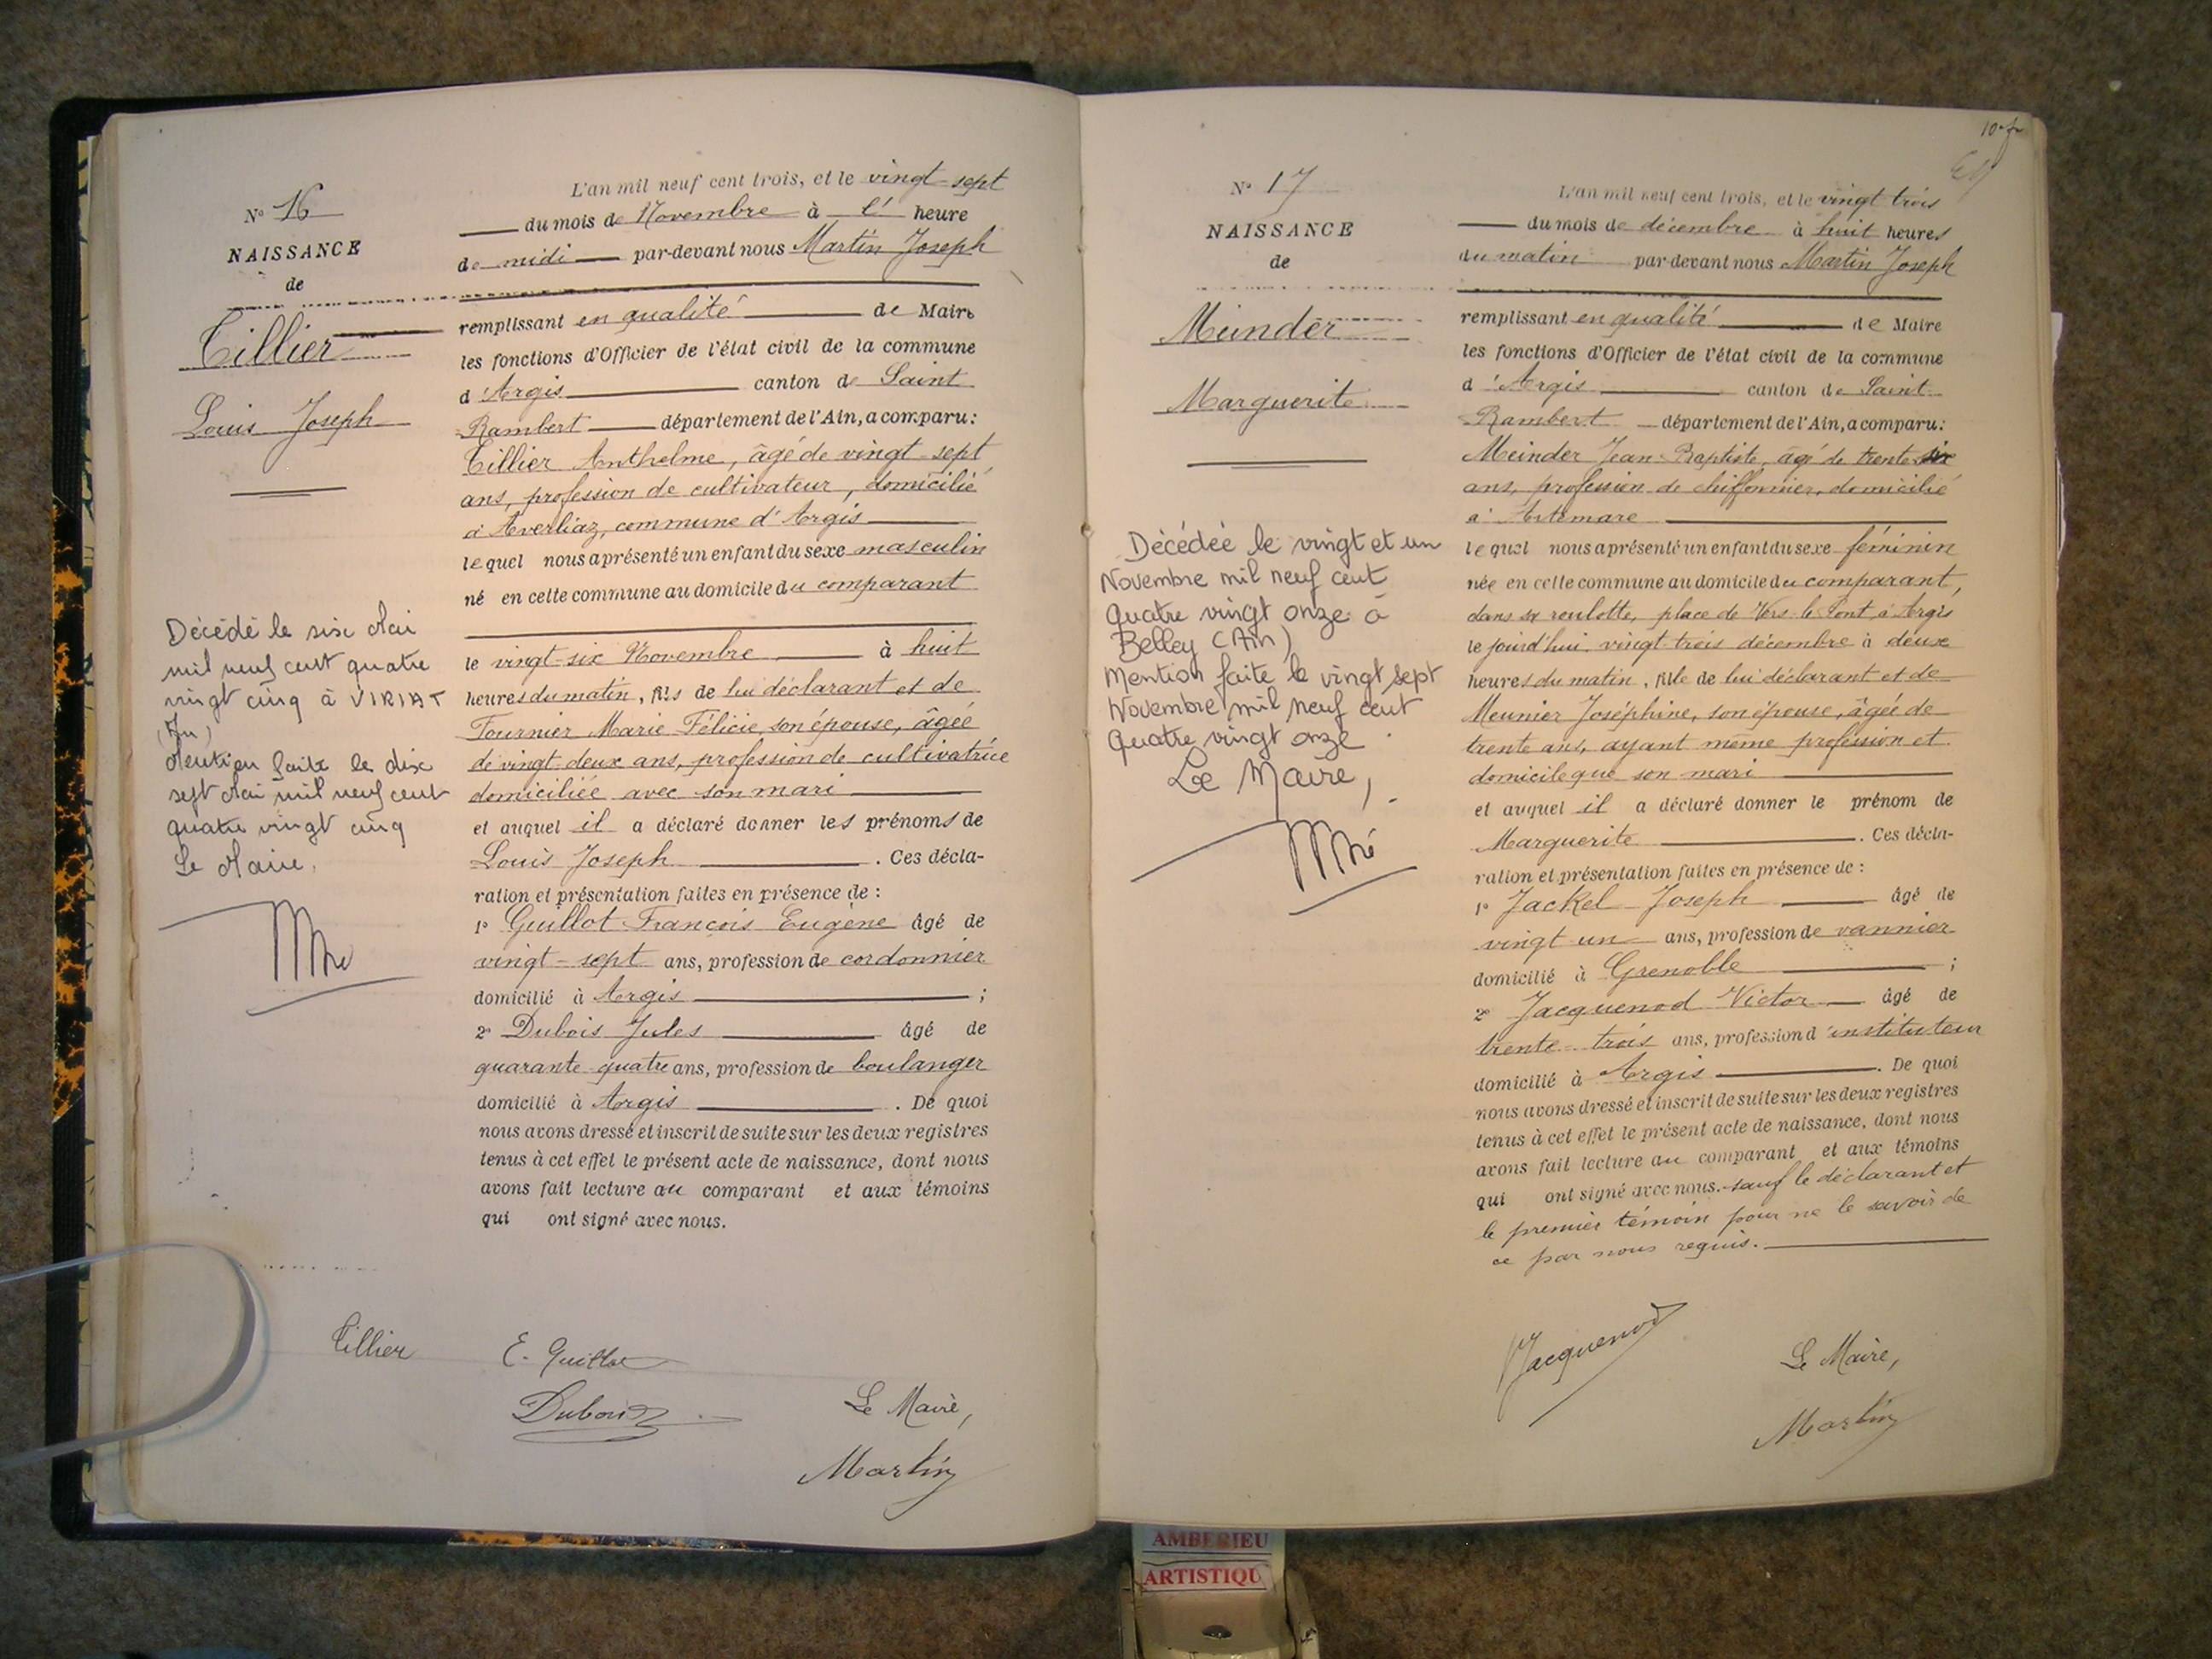 N° 16
NAISSANCE
de
Tillier
Louis Joseph
Décédé le six Mai
mil neuf cent quatre
vingt cinq à VIRIAT
(Ain)
Mention faite le dix
sept Mai mil neuf cent
quatre vingt cinq
Le Maire,
L'an mil neuf cent trois, et le vingt-sept
du mois de Novembre à l' heure
de midi par-devant nous Martin Joseph
remplissant en qualité de Maire
les fonctions d'Officier de l'état civil de la commune
d'Argis canton de Saint
Rambert département de l'Ain, a comparu:
Tillier Anthelme, âgé de vingt-sept
ans, profession de cultivateur, domicilié
à Averliaz, commune d'Argis
lequel nous a présenté un enfant du sexe masculin
né en cette commune au domicile du comparant
le vingt-six Novembre à huit
heures du matin, fils de lui déclarant et de
Fournier Marie Félicie, son épouse, âgée
de vingt-deux ans, profession de cultivatrice
domiciliée avec son mari
et auquel il a déclaré donner les prénoms de
Louis Joseph . Ces décla-
ration et présentation faites en présence de :
1° Guillot François Eugène âgé de
vingt-sept ans, profession de cordonnier
domicilié à Argis ;
2° Dubois Jules âgé de
quarante-quatre ans, profession de boulanger
domicilié à Argis . De quoi
nous avons dressé et inscrit de suite sur les deux registres
tenus à cet effet le présent acte de naissance, dont nous
avons fait lecture au comparant et aux témoins
qui ont signé avec nous.
Tillier
E. Guillot
Dubois
Le Maire,
Martin
N° 17
NAISSANCE
de
Meinder
Marguerite
Décédée le vingt et un
Novembre mil neuf cent
Quatre vingt onze à
Belley (Ain)
Mention faite le vingt sept
Novembre mil neuf cent
Quatre vingt onze.
Le Maire,
L'an mil neuf cent trois, et le vingt trois
du mois de décembre à huit heures
du matin par-devant nous Martin Joseph
remplissant en qualité de Maire
les fonctions d'Officier de l'état civil de la commune
d'Argis canton de Saint
Rambert département de l'Ain, a comparu:
Meinder Jean-Baptiste, âgé de trente-six
ans, profession de chiffonnier, domicilié
à Artemare
lequel nous a présenté un enfant du sexe féminin
née en cette commune au domicile du comparant,
dans sa roulotte, place de Vers-le-Pont, à Argis
le jourd'hui vingt-trois décembre à deux
heures du matin, fille de lui déclarant et de
Meunier Joséphine, son épouse, âgée de
trente ans, ayant même profession et
domicile que son mari
et auquel il a déclaré donner le prénom de
Marguerite . Ces décla-
ration et présentation faites en présence de :
1° Jackel Joseph âgé de
vingt un ans, profession de vannier
domicilié à Grenoble ;
2° Jacquenod Victor âgé de
trente-trois ans, profession d'instituteur
domicilié à Argis . De quoi
nous avons dressé et inscrit de suite sur les deux registres
tenus à cet effet le présent acte de naissance, dont nous
avons fait lecture au comparant et aux témoins
qui ont signé avec nous.-sauf le déclarant et
le premier témoin pour ne le savoir de
ce par nous requis.
Jacquenod
Le Maire,
Martin
AMBERIEU
ARTISTIQU